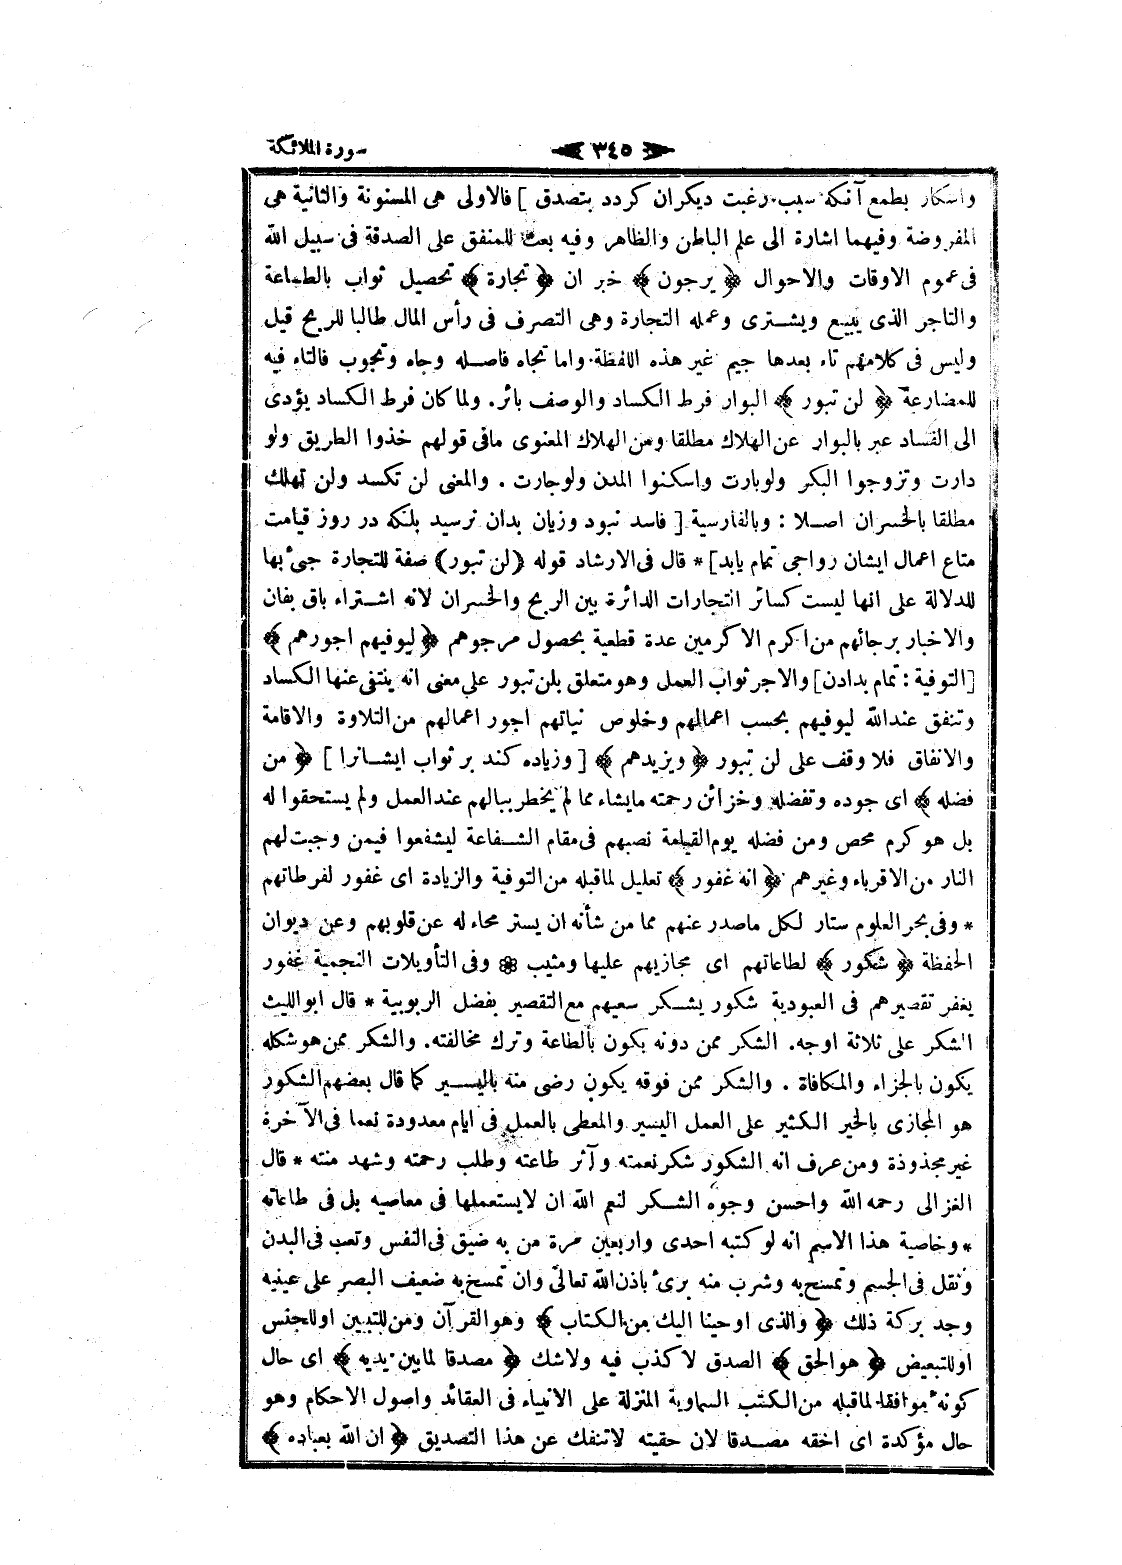 سورة الملائكة ٣٤٥
وآشكار بطمع آنكه سبب رغبت ديكران كردد بتصدق ] فالاولى هى المسنونة والثانية هى
المفروضة وفيهما اشارة الى علم الباطن والظاهر وفيه بعث للمنفق على الصدقة فى سبيل الله
فى عموم الاوقات والاحوال ﴿ يرجون ﴾ خبر ان ﴿ تجارة ﴾ تحصيل ثواب بالطاعة
والتاجر الذى يبيع ويشترى وعمله التجارة وهى التصرف فى رأس المال طالبا للربح قيل
وليس فى كلامهم تاء بعدها جيم غير هذه اللفظة واما تجاه فاصله وجاه وتجوب فالتاء فيه
للمضارعة ﴿ لن تبور ﴾ البوار فرط الكساد والوصف بائر. ولما كان فرط الكساد يؤدى
الى الفساد عبر بالبوار عن الهلاك مطلقا ومن الهلاك المعنوى مافى قولهم خذوا الطريق ولو
دارت وتزوجوا البكر ولوبارت واسكنوا المدن ولوجارت . والمعنى لن تكسد ولن تهلك
مطلقا بالخسران اصلا : وبالفارسية [ فاسد نبود وزيان بدان نرسيد بلكه در روز قيامت
متاع اعمال ايشان رواجى تمام يابد ] * قال فى الارشاد قوله ( لن تبور ) صفة للتجارة جىء بها
للدلالة على انها ليست كسائر التجارات الدائرة بين الربح والخسران لانه اشتراء باق بفان
والاخبار برجائهم من اكرم الاكرمين عدة قطعية بحصول مرجوهم ﴿ ليوفيهم اجورهم ﴾
[ التوفية : تمام بدادن ] والاجر ثواب العمل وهو متعلق بلن تبور على معنى انه ينتفى عنها الكساد
وتنفق عندالله ليوفيهم بحسب اعمالهم وخلوص نياتهم اجور اعمالهم من التلاوة والاقامة
والانفاق فلا وقف على لن تبور ﴿ ويزيدهم ﴾ [ وزياده كند بر ثواب ايشانرا ] ﴿ من
فضله ﴾ اى جوده وتفضله وخزائن رحمته مايشاء مما لم يخطر ببالهم عندالعمل ولم يستحقوا له
بل هو كرم محض ومن فضله يوم القيامة نصبهم فى مقام الشفاعة ليشفعوا فيمن وجبت لهم
النار من الاقرباء وغيرهم ﴿ انه غفور ﴾ تعليل لماقبله من التوفية والزيادة اى غفور لفرطاتهم
* وفى بحر العلوم ستار لكل ماصدر عنهم مما من شأنه ان يستر محاء له عن قلوبهم وعن ديوان
الحفظة ﴿ شكور ﴾ لطاعاتهم اى مجازيهم عليها ومثيب ❁ وفى التأويلات النجمية غفور
يغفر تقصيرهم فى العبودية شكور يشكر سعيهم مع التقصير بفضل الربوبية * قال ابوالليث
الشكر على ثلاثة اوجه. الشكر ممن دونه يكون بالطاعة وترك مخالفته. والشكر ممن هو شكله
يكون بالجزاء والمكافاة . والشكر ممن فوقه يكون رضى منه باليسير كما قال بعضهم الشكور
هو المجازى بالخير الكثير على العمل اليسير والمعطى بالعمل فى ايام معدودة نعما فى الآخرة
غير مجذوذة ومن عرف انه الشكور شكر نعمته وآثر طاعته وطلب رحمته وشهد منته * قال
الغزالى رحمه الله واحسن وجوه الشكر لنعم الله ان لايستعملها فى معاصيه بل فى طاعاته
* وخاصية هذا الاسم انه لو كتبه احدى واربعين مرة من به ضيق فى النفس وتعب فى البدن
وثقل فى الجسم وتمسح به وشرب منه برئ باذن الله تعالى وان تمسح به ضعيف البصر على عينيه
وجد بركة ذلك ﴿ والذى اوحينا اليك من الكتاب ﴾ وهو القرآن ومن للتبيين اوللجنس
اوللتبعيض ﴿ هو الحق ﴾ الصدق لا كذب فيه ولاشك ﴿ مصدقا لما بين يديه ﴾ اى حال
كونه موافقا لماقبله من الكتب السماوية المنزلة على الانبياء فى العقائد واصول الاحكام وهو
حال مؤكدة اى احقه مصدقا لان حقيته لاتنفك عن هذا التصديق ﴿ ان الله بعباده ﴾